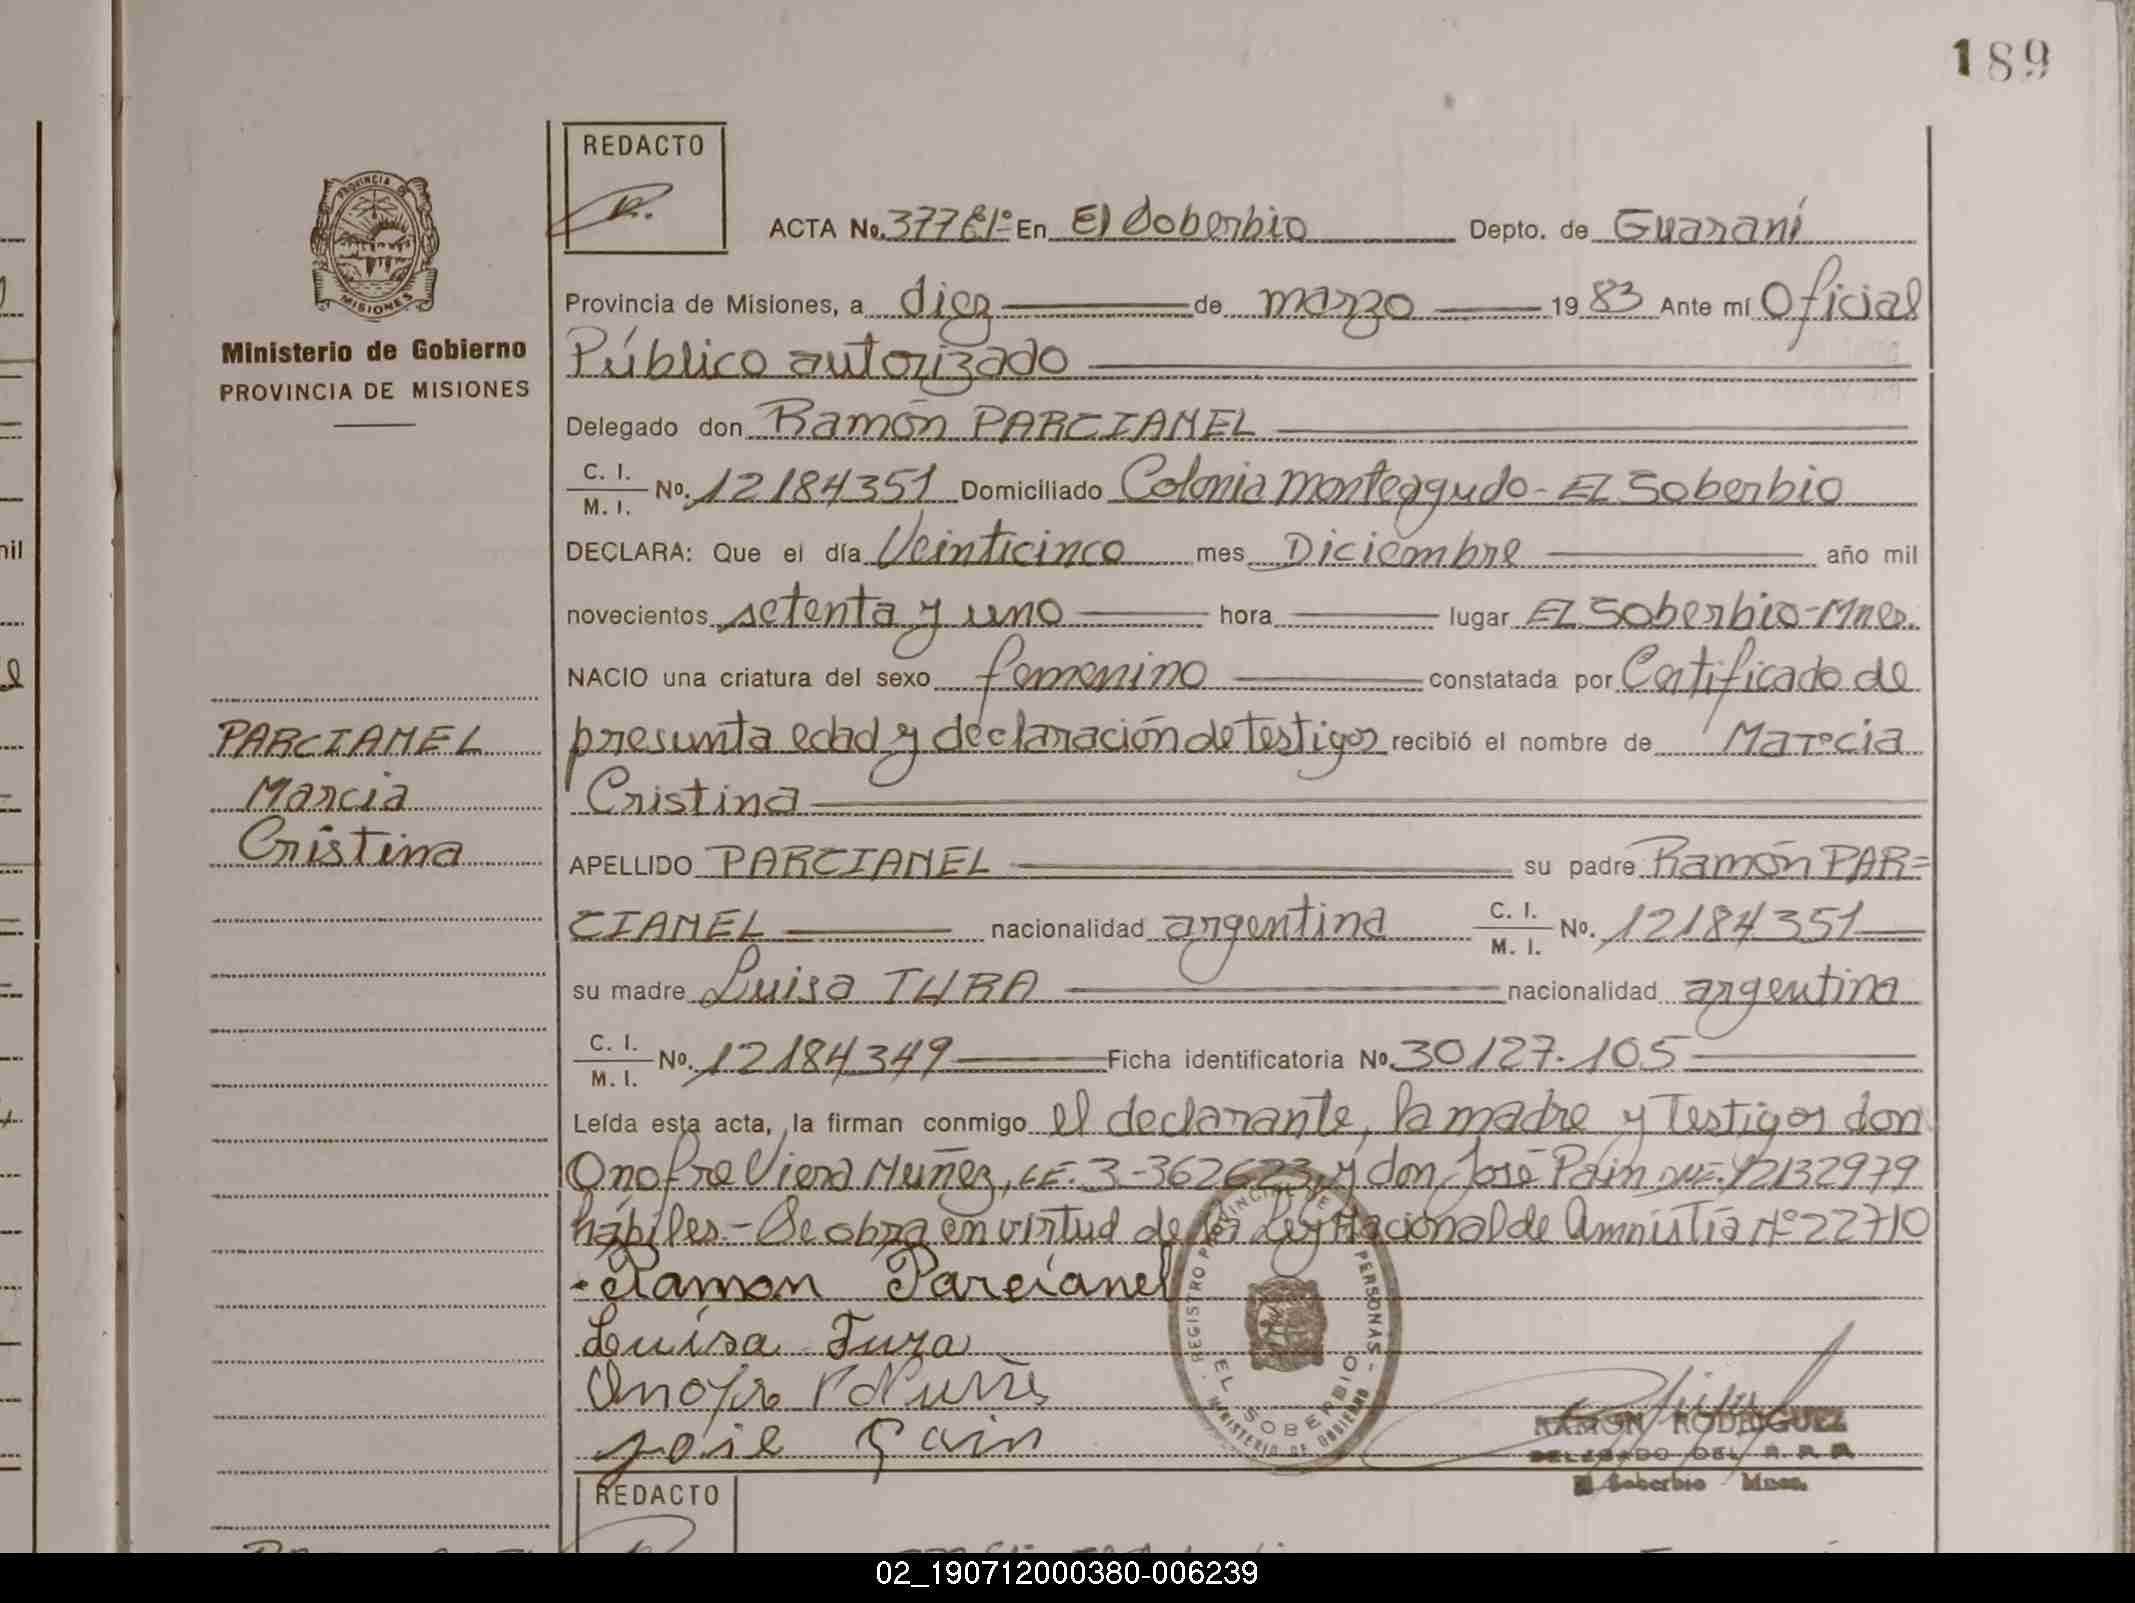 189
REDACTO
PROVINCIA DE
MISIONES
Ministerio de Gobierno
PROVINCIA DE MISIONES
ACTA No. En El Soberbio Depto. de Guaraní
Provincia de Misiones, a diez de marzo 1983 Ante mí Oficial
Público autorizado
Delegado don Ramón PARCIANEL
C. I. / M. I. No. 12184351 Domiciliado Colonia monteagudo - EL Soberbio
DECLARA: Que el día Veinticinco mes Diciembre año mil
novecientos setenta y uno hora lugar EL Soberbio - Mnes.
NACIO una criatura del sexo femenino constatada por Certificado de
presunta edad y declaración de testigos recibió el nombre de Marcia
Cristina
PARCIANEL
Marcia
Cristina
APELLIDO PARCIANEL su padre Ramón PAR=
CIANEL nacionalidad argentina C. I. / M. I. No. 12184351
su madre Luisa TURA nacionalidad argentina
C. I. / M. I. No. 12184349 Ficha identificatoria No. 30127.105
Leída esta acta, la firman conmigo el declarante, la madre y Testigos don
Onofre Viera Nuñez, LE. 3-362623, y don José Pain DNI. 12132979
hábiles.- Se obra en virtud de la Ley Nacional de Amnistía Nº 22710
Ramon Parcianel
Luisa Tura
Onofre V Nuñes
José Pain
REGISTRO PROVINCIAL DE PERSONAS - MINISTERIO DE GOBIERNO
EL SOBERBIO
RAMON RODRIGUEZ
DELEGADO DEL R.P.P.
El Soberbio Mnes.
REDACTO
02_190712000380-006239